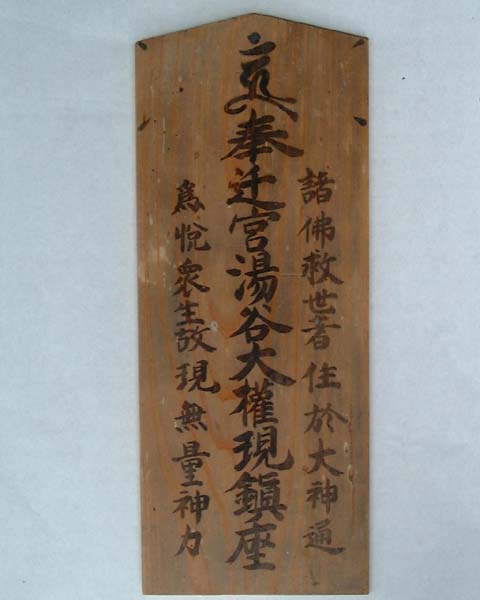 諸佛救世者住於大神通
奉迁宮湯谷大權現鎮座
為悅衆生故現無量神力